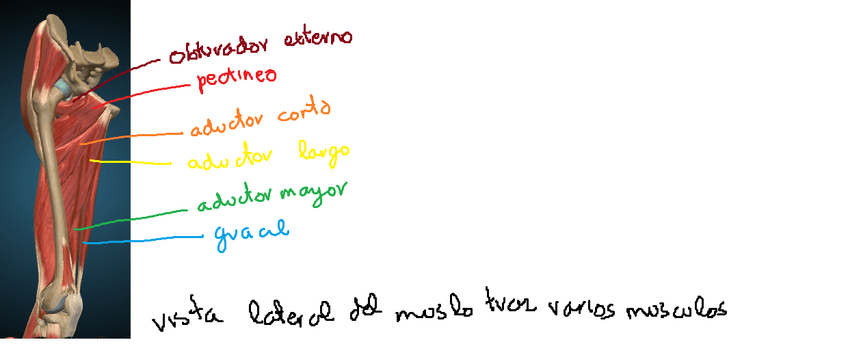 obturador externo
pectineo
aductor corto
aductor largo
aductor mayor
gracil
vista lateral del muslo tras varios musculos